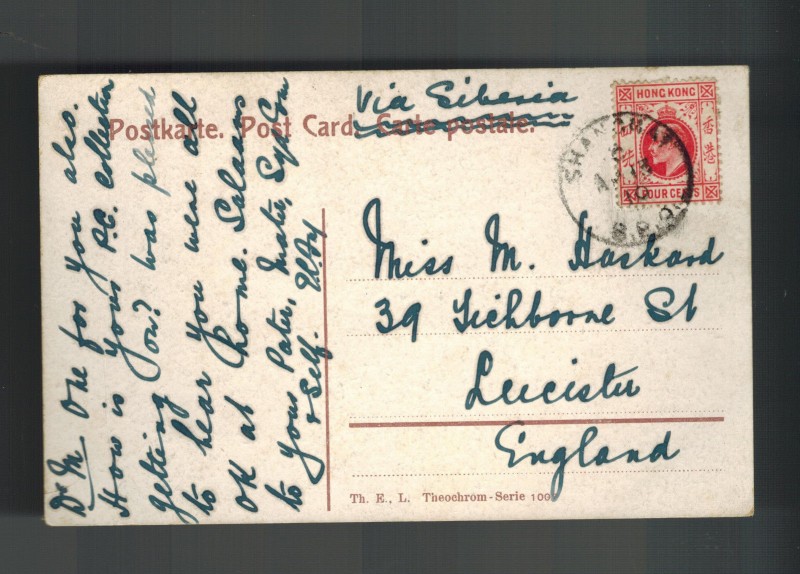 Via Siberia
Postkarte. Post Card. Carte postale.
HONG KONG
香港
FOUR CENTS
SHANGHAI
10
B.P.O.
Dr M One for you also.
How is your P.C. collection
getting on? was pleased
to hear you were all
OK at home. Salaams
to your Pater, Mater, Syd Con
& Self.
Miss M. Haskard
39 Tichborne St
Leicister
England
Th. E., L. Theochrom-Serie 100